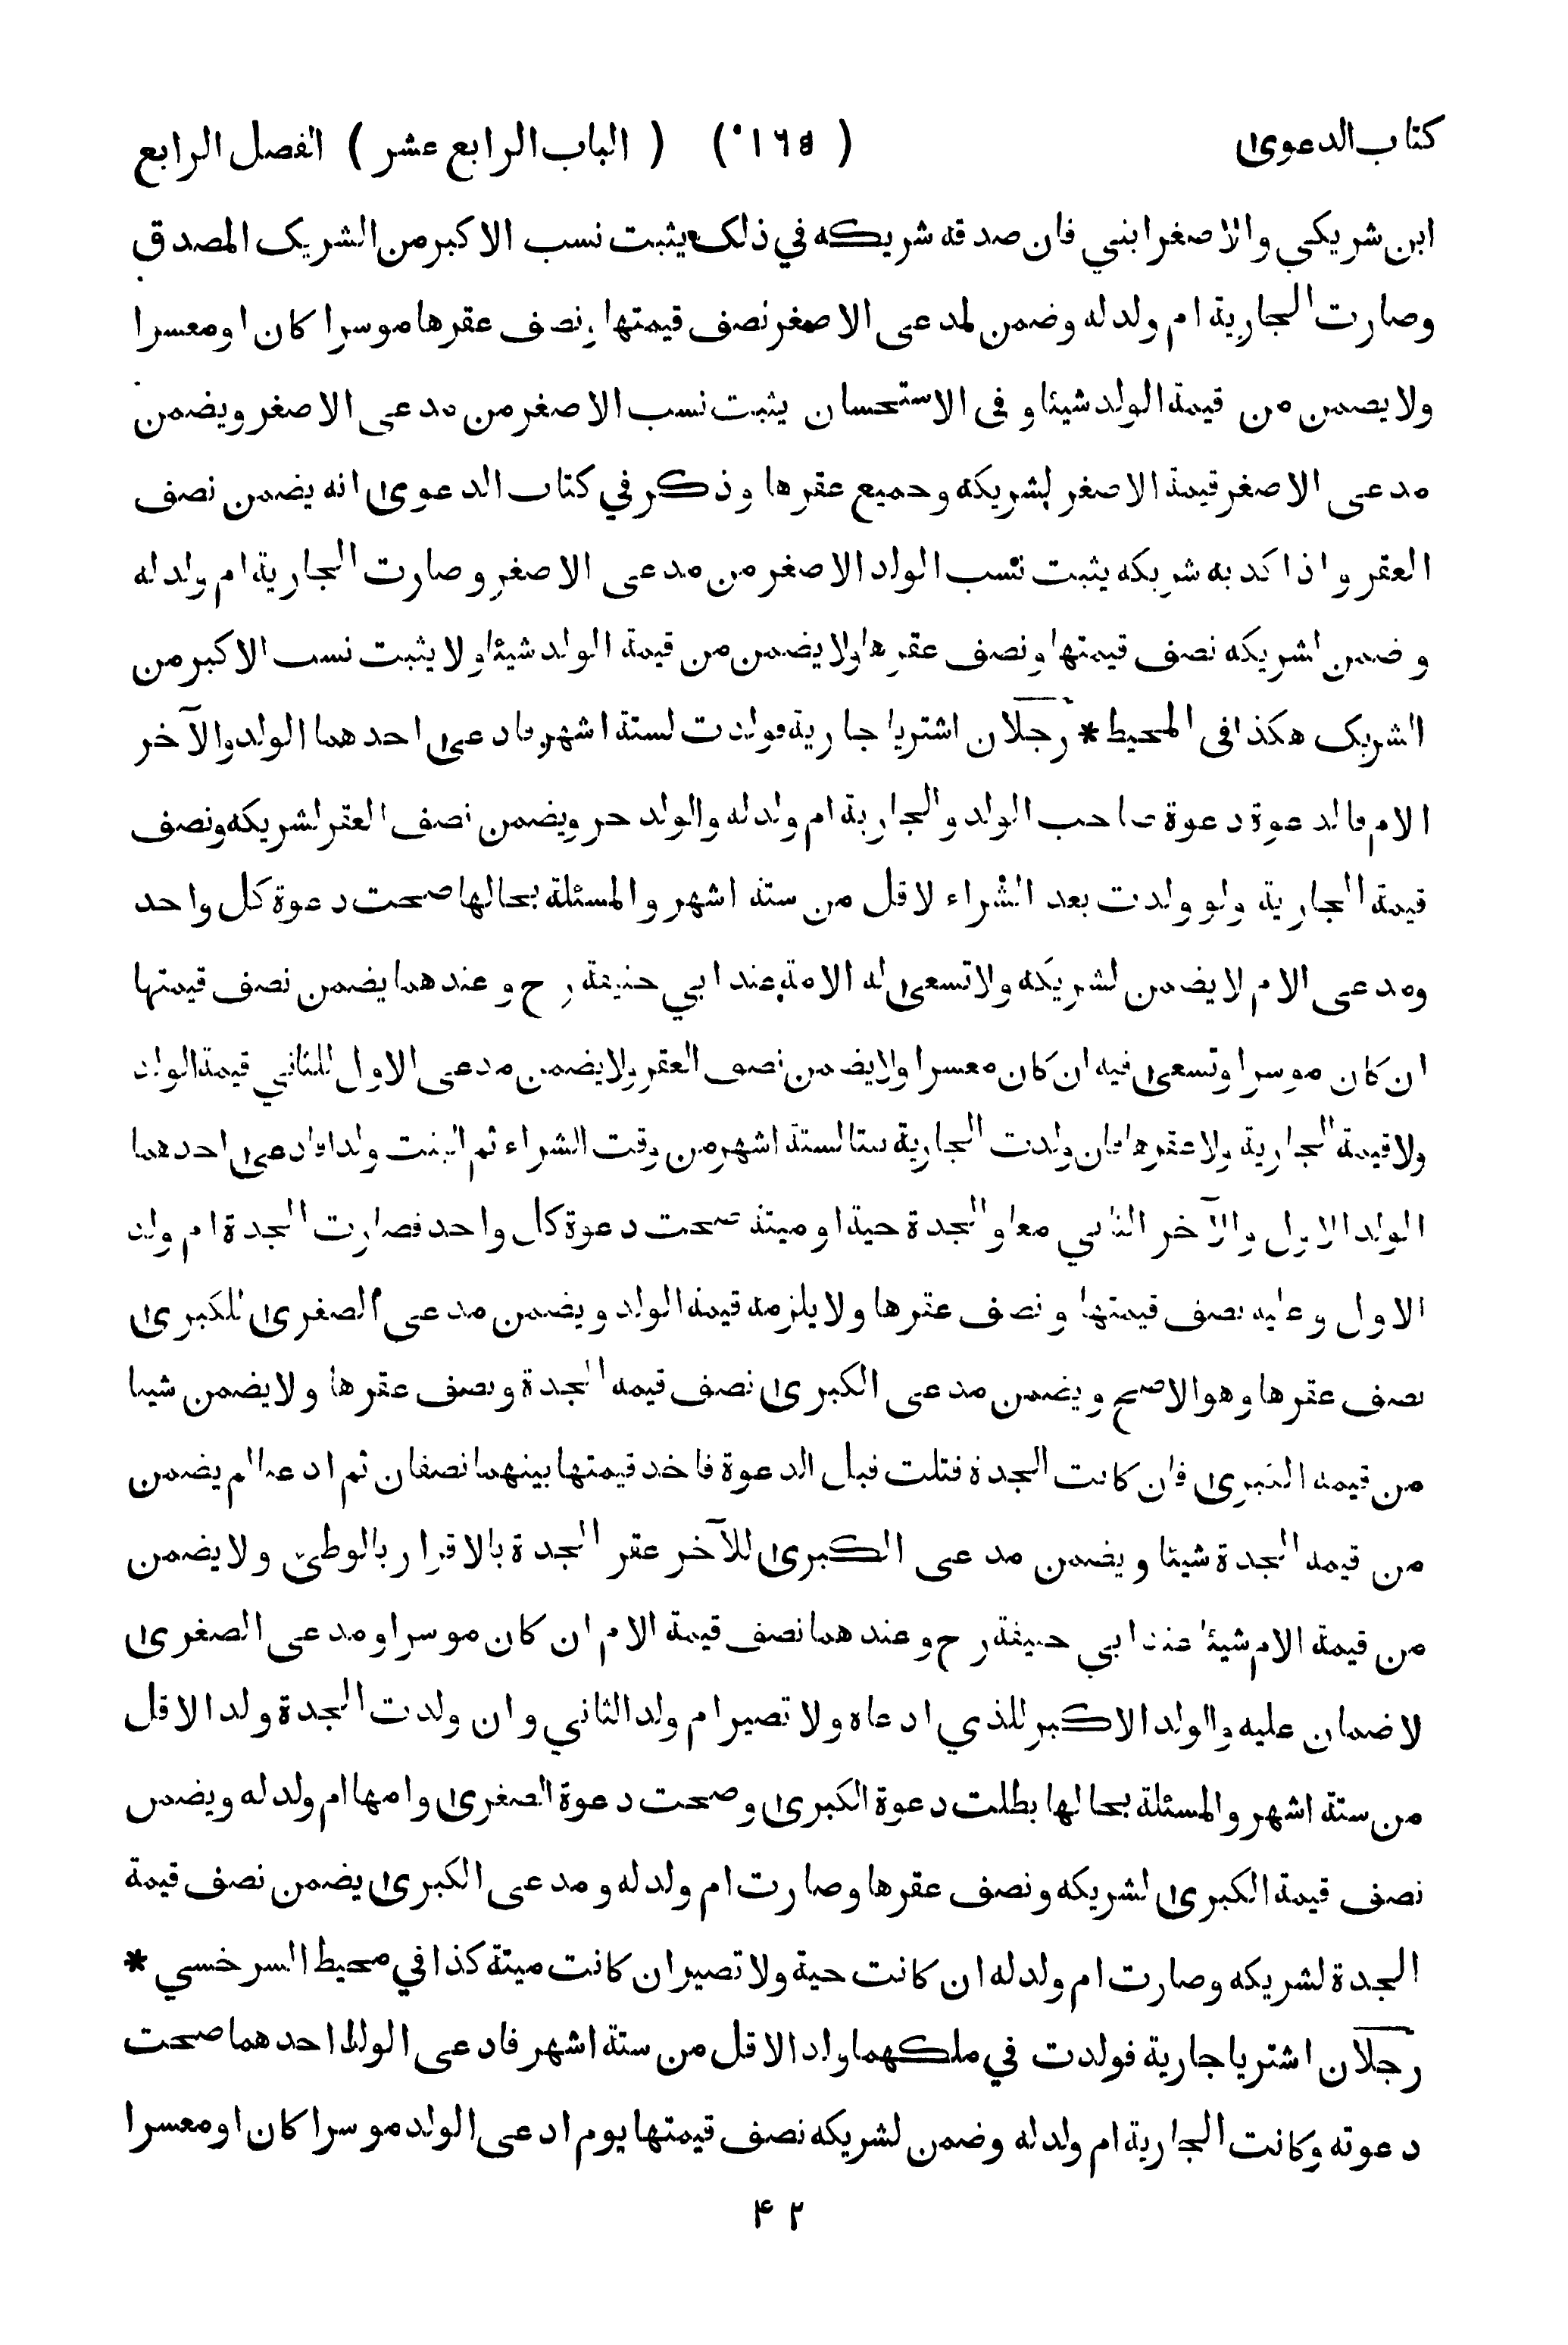 كتاب الدعوى ( ١٦٥ ) ( الباب الرابع عشر ) الفصل الرابع
ابن شريكي والاصغر ابني فان صدقه شريكه في ذلك يثبت نسب الاكبر من الشريك المصدق
وصارت الجارية ام ولد له وضمن لمدعى الاصغر نصف قيمتها ونصف عقرها موسرا كان او معسرا
ولا يضمن من قيمة الولد شيئا وفى الاستحسان يثبت نسب الاصغر من مدعى الاصغر ويضمن
مدعى الاصغر قيمة الاصغر لشريكه وجميع عقرها وذكر في كتاب الدعوى انه يضمن نصف
العقر واذا كذبه شريكه يثبت نسب الولد الاصغر من مدعى الاصغر وصارت الجارية ام ولد له
وضمن لشريكه نصف قيمتها ونصف عقرها ولا يضمن من قيمة الولد شيئا ولا يثبت نسب الاكبر من
الشريك هكذا فى المحيط * رجلان اشتريا جارية فولدت لستة اشهر فادعى احدهما الولد والآخر
الام فالدعوة دعوة صاحب الولد والجارية ام ولد له والولد حر ويضمن نصف العقر لشريكه ونصف
قيمة الجارية ولو ولدت بعد الشراء لاقل من ستة اشهر والمسئلة بحالها صحت دعوة كل واحد
ومدعى الام لا يضمن لشريكه ولا تسعى له الامة عند ابي حنيفة رح وعندهما يضمن نصف قيمتها
ان كان موسرا وتسعى فيه ان كان معسرا ولا يضمن نصف العقر ولا يضمن مدعى الاول للثاني قيمة الولد
ولا قيمة الجارية ولا عقرها فان ولدت الجارية بنتا لستة اشهر من وقت الشراء ثم البنت ولدا فادعى احدهما
الولد الاول والآخر الثاني معا والجدة حية او ميتة صحت دعوة كل واحد فصارت الجدة ام ولد
الاول وعليه نصف قيمتها ونصف عقرها ولا يلزمه قيمة الولد ويضمن مدعى الصغرى للكبرى
نصف عقرها وهو الاصح ويضمن مدعى الكبرى نصف قيمة الجدة ونصف عقرها ولا يضمن شيئا
من قيمة الكبرى فان كانت الجدة قتلت قبل الدعوة فاخذ قيمتها بينهما نصفان ثم ادعيا لم يضمن
من قيمة الجدة شيئا ويضمن مدعى الكبرى للآخر عقر الجدة بالاقرار بالوطئ ولا يضمن
من قيمة الام شيئا عند ابي حنيفة رح وعندهما نصف قيمة الام ان كان موسرا ومدعى الصغرى
لا ضمان عليه والولد الاكبر للذي ادعاه ولا تصير ام ولد الثاني وان ولدت الجدة ولدا لاقل
من ستة اشهر والمسئلة بحالها بطلت دعوة الكبرى وصحت دعوة الصغرى وامها ام ولد له ويضمن
نصف قيمة الكبرى لشريكه ونصف عقرها وصارت ام ولد له ومدعى الكبرى يضمن نصف قيمة
الجدة لشريكه وصارت ام ولد له ان كانت حية ولا تصير ان كانت ميتة كذا في محيط السرخسي *
رجلان اشتريا جارية فولدت في ملكهما ولدا لاقل من ستة اشهر فادعى الولد احدهما صحت
دعوته وكانت الجارية ام ولد له وضمن لشريكه نصف قيمتها يوم ادعى الولد موسرا كان او معسرا
۴۲